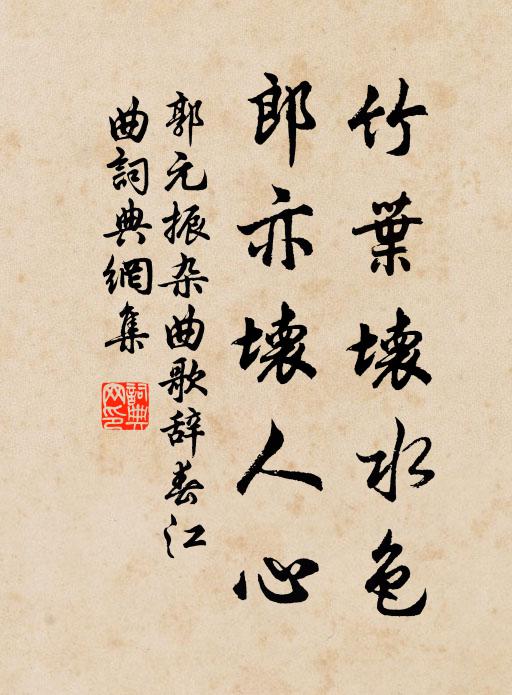 竹葉壞水色
郎亦壞人心
郭元振杂曲歌辞春江
曲詞典網集
詞典网印